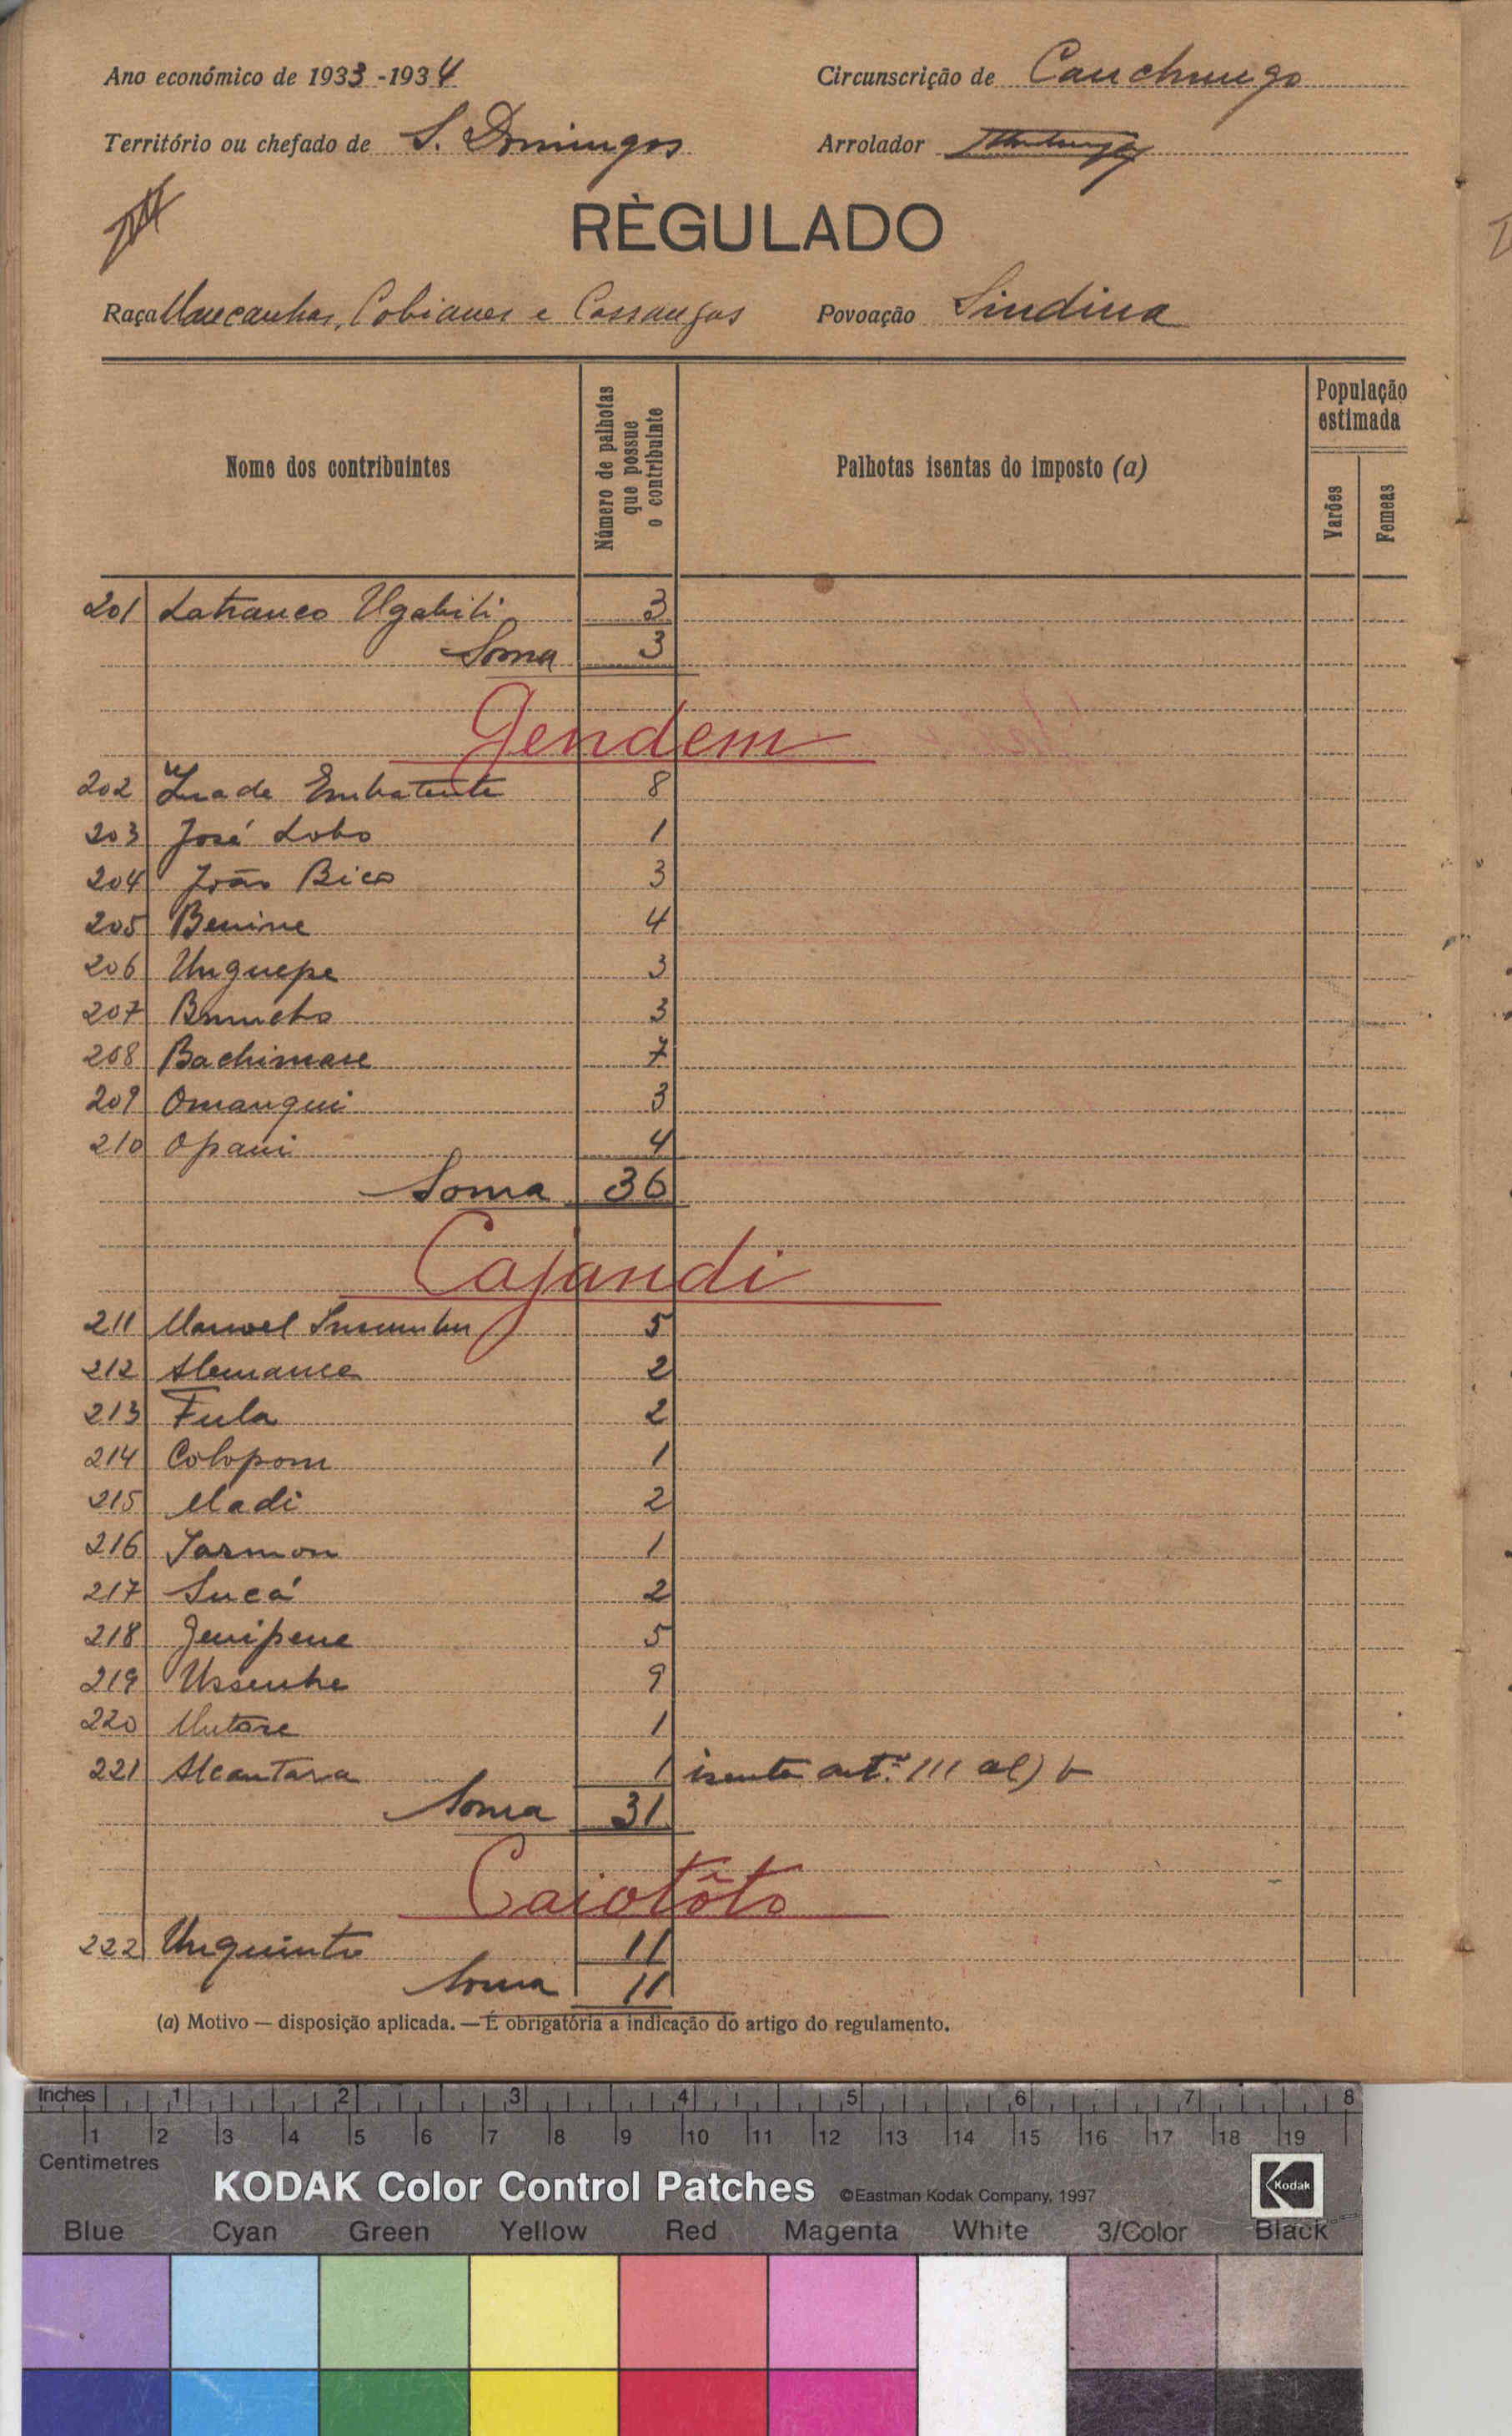 Ano económico de 1933-1934 Circunscrição de Canchungo
Território ou chefado de S. Domingos Arrolador
RÈGULADO
Raça Mancanhas, Cobianes e Cassangas Povoação Sindina
Nome dos contribuintes
Número de palhotas que possue o contribuinte
Palhotas isentas do imposto (a)
População estimada
Varões
Femeas
201 3
Soma 3
Gendem
202 8
203 José Lobo 1
204 João Bico 3
205 Benine 4
206 Unguepe 3
207 3
208 Bachimase 7
209 Omangui 3
210 Opani 4
Soma 36
Cajandi
211 Manoel 5
212 2
213 Fula 2
214 Colopom 1
215 Madi 2
216 Jasmon 1
217 Sucá 2
218 Jenipene 5
219 Ussenhe 9
220 1
221 Alcantara 1 isento art.º 111 al) b
Soma 31
Caiotôto
222 Unguinto 11
Soma 11
(a) Motivo — disposição aplicada. — É obrigatória a indicação do artigo do regulamento.
Inches 1 2 3 4 5 6 7 8
1 2 3 4 5 6 7 8 9 10 11 12 13 14 15 16 17 18 19
Centimetres
KODAK Color Control Patches ©Eastman Kodak Company, 1997 Kodak
Blue Cyan Green Yellow Red Magenta White 3/Color Black